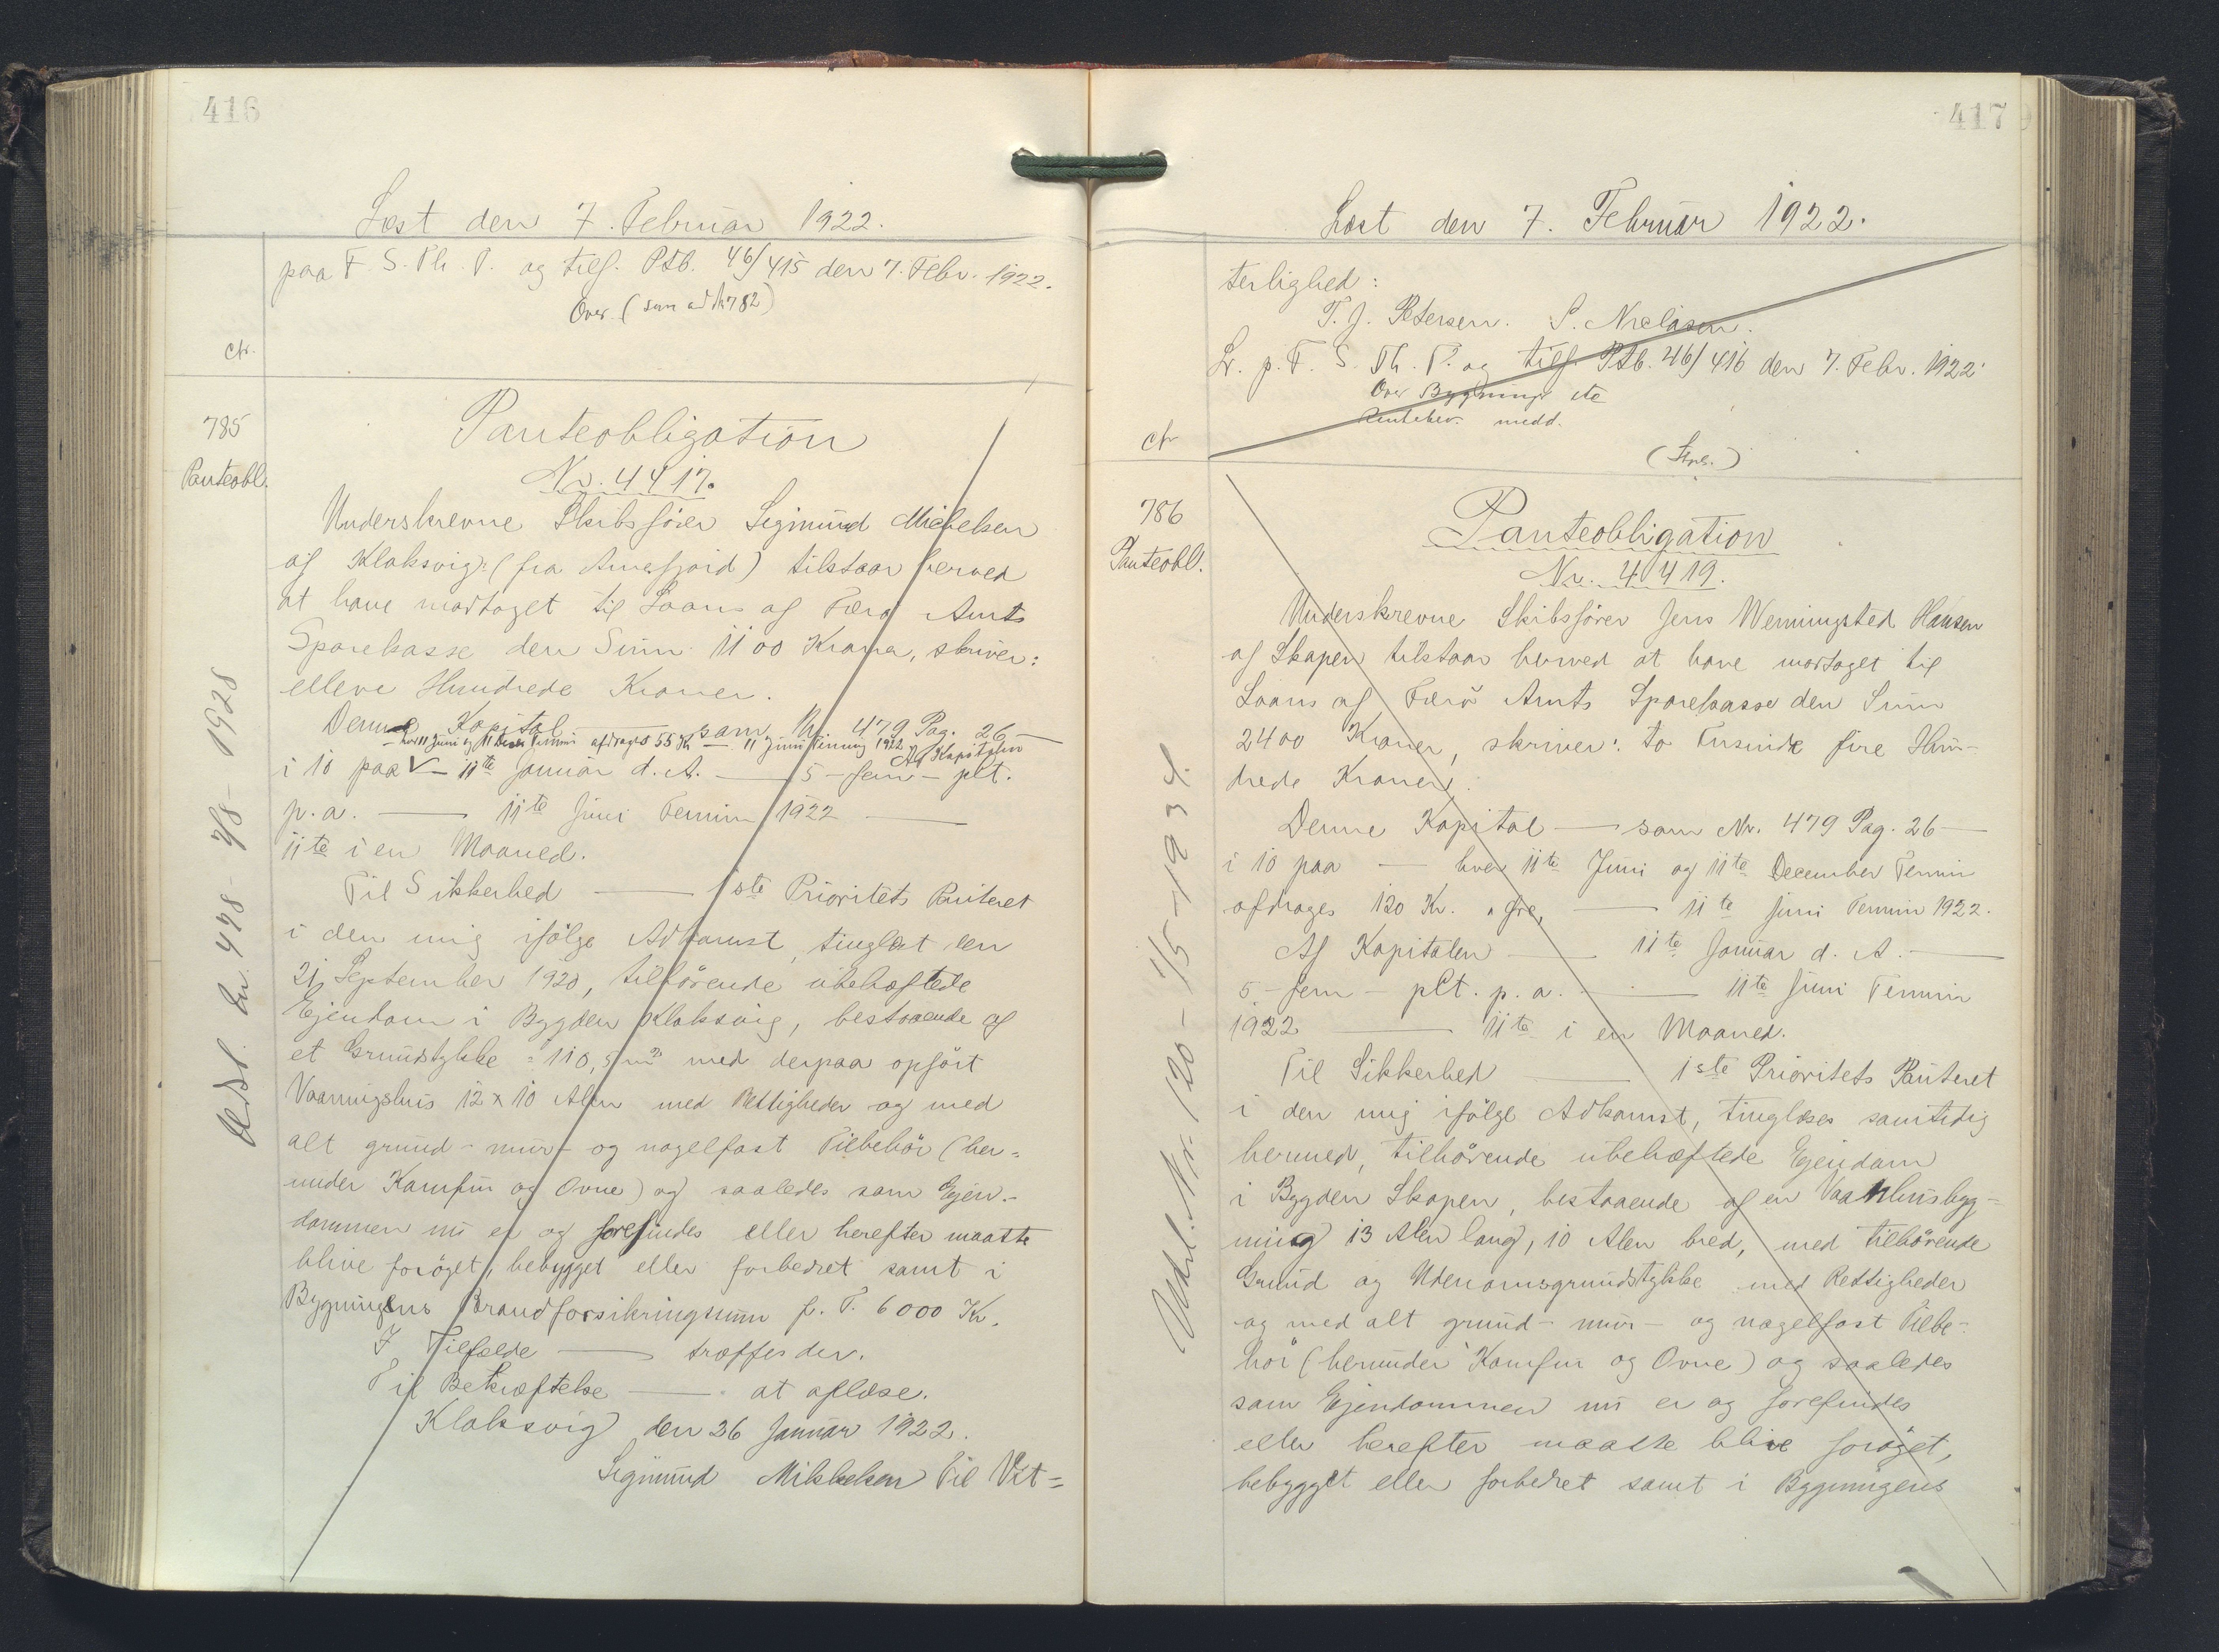 416
Læst den 7. Februar 1922.
paa F. S. Th. P. og tilf. Ptb. 46/415 den 7. Febr. 1922.
Over (som ad Nr 782)
Ar.
785
Panteobl.
Panteobligation
Nr. 4417.
Underskrevne Skibsfører Sigmund Mickelsen
af Klaksvig (fra Arnefjord) tilstaar herved
at have modtaget til Laans af Færø Amts
Sparekasse den Sum 1100 Kroner, skriver:
elleve Hundrede Kroner.
Denne Kapital — som Nr. 479 Pag. 26 —
— hver 11 Juni og 11 Decbr Termin afdrages 55 Kr — 11 Juni Termin 1922
Af Kapitalen
i 10 paa V — 11te Januar d. A. — 5 – fem – pCt.
p. a. — 11te Juni Termin 1922 —
11te i en Maaned.
Til Sikkerhed — 1ste Prioritets Panteret
i den mig ifølge Adkomst, tinglæst den
21 September 1920, tilhørende ubehæftede
Ejendom i Bygden Klaksvig, bestaaende af
et Grundstykke = 110,5 m² med derpaa opført
Vaaningshus 12 x 10 Alen med Rettigheder og med
alt grund- mur- og nagelfast Tilbehør (her=
under Komfur og Ovne) og saaledes som Ejen-
dommen nu er og forefindes eller herefter maatte
blive forøget, bebygget eller forbedret samt i
Bygningens Brandforsikringsum p. T. 6000 Kr.
I Tilfælde — træffes der.
Til Bekræftelse — at aflæse.
Klaksvig den 26 Januar 1922.
Sigmund Mikkelsen Til Vit=
Udsl. Lnr. 478 - 7/8 - 1928
417
Læst den 7. Februar 1922.
terlighed:
T. J. Petersen. S. Niclasen.
Lr. p. F. S. Th. P. og tilf. Ptb. 46/416 den 7. Febr. 1922.
Over Bygninger etc
medd.
Ar
786
Panteobl.
Panteobligation
Nr. 4419.
Underskrevne Skibsfører Jens Wenningsted Hansen
af Skapen tilstaar herved at have modtaget til
Laans af Færø Amts Sparekasse den Sum
2400 Kroner, skriver: to Tusinde fire Hun-
drede Kroner.
Denne Kapital — som Nr. 479 Pag. 26 —
i 10 paa — hver 11te Juni og 11te December Termin
afdrages 120 Kr. " Øre, — 11te Juni Termin 1922.
Af Kapitalen — 11te Januar d. A. —
5 – fem – pCt. p. a. — 11te Juni Termin
1922 — 11te i en Maaned.
Til Sikkerhed — 1ste Prioritets Panteret
i den mig ifølge Adkomst, tinglæses samtidig
hermed, tilhørende ubehæftede Ejendom
i Bygden Skapen, bestaaende af en Vaanhusbyg-
ning 13 Alen lang, 10 Alen bred, med tilhørende
Grund og Udenomsgrundstykke med Rettigheder
og med alt grund- mur- og nagelfast Tilbe-
hør (herunder Komfur og Ovne) og saaledes
som Ejendommen nu er og forefindes
eller herefter maatte blive forøget,
bebygget eller forbedret samt i Bygningens
Udsl. Nr. 120 - 1/5 - 1934.